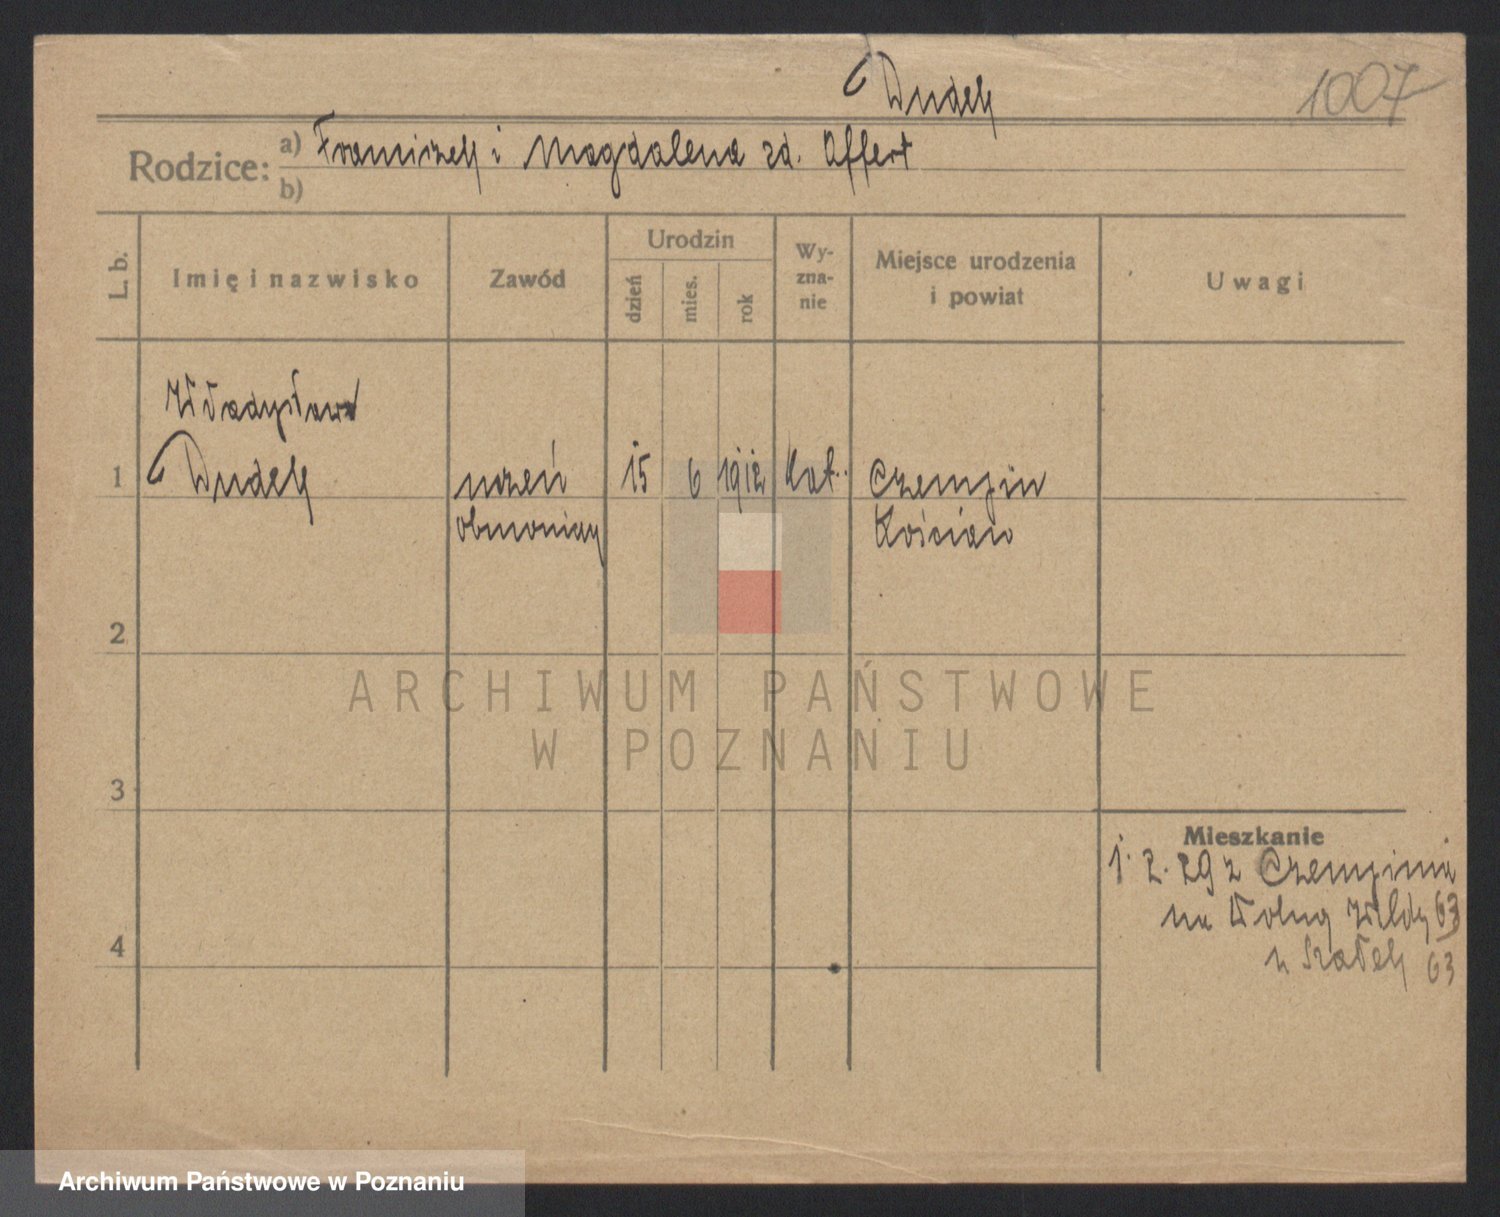 Dudek
1007
Rodzice: a) Franciszek i Magdalena zd. Offert
b)
L. b.
Imię i nazwisko
Zawód
Urodzin
dzień
mies.
rok
Wy-
zna-
nie
Miejsce urodzenia
i powiat
Uwagi
Władysław
1 Dudek uczeń 15 6 1912 kat. Czempin
Kościan
2
ARCHIWUM PAŃSTWOWE
W POZNANIU
3
Mieszkanie
1. 2. 29 z Czempinia
na Wildy 63
4
u 63
Archiwum Państwowe w Poznaniu